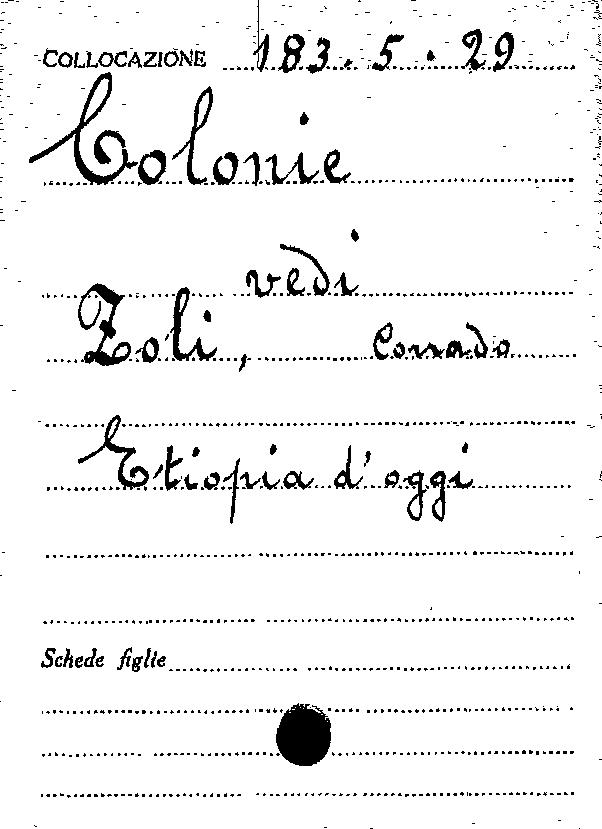 COLLOCAZIONE 183.5.29
Colonie
vedi
Zoli, Corrado
Etiopia d'oggi
Schede figlie